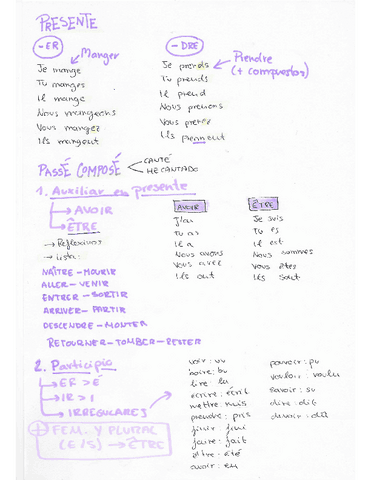 PRESENTE
-ER
Manger
Je mange
Tu manges
Il mange
Nous mangeons
Vous mangez
Ils mangent
-DRE
Prendre
(+ compuestos)
Je prends
Tu prends
Il prend
Nous prenons
Vous prenez
Ils prennent
PASSÉ COMPOSÉ
CANTÉ
HE CANTADO
1. Auxiliar en presente
→ AVOIR
→ ÊTRE
→ Reflexivos
→ Lista:
NAÎTRE - MOURIR
ALLER - VENIR
ENTRER - SORTIR
ARRIVER - PARTIR
DESCENDRE - MONTER
RETOURNER - TOMBER - RESTER
AVOIR
J'ai
Tu as
Il a
Nous avons
Vous avez
Ils ont
ÊTRE
Je suis
Tu es
Il est
Nous sommes
Vous êtes
Ils sont
2. Participio
→ ER > É
→ IR > I
→ IRREGULARES
+ FEM. Y PLURAL
(E/S) → ÊTRE
voir: vu
boire: bu
lire: lu
écrire: écrit
mettre: mis
prendre: pris
finir: fini
faire: fait
être: été
avoir: eu
pouvoir: pu
vouloir: voulu
savoir: su
dire: dit
devoir: dû